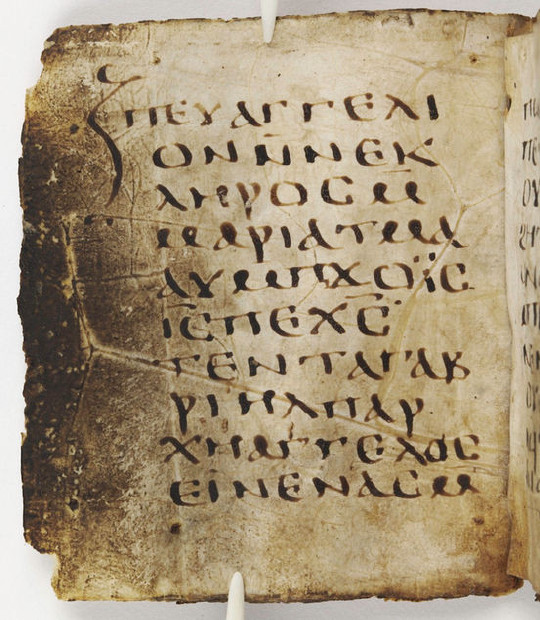 ⲡⲉⲩⲁⲅⲅⲉⲗⲓ
ⲟⲛⲛ̄ⲛⲉⲕ
ⲗⲏⲣⲟⲥⲙ
ⲙⲁⲣⲓⲁⲧⲙⲁ
ⲁⲩⲙⲡϫⲟⲓ̈ⲥ
ⲓ̄ⲥ̄ⲡⲉⲭ̄ⲥ̄
ⲧⲉⲛⲧⲁⲅⲁⲃ
ⲣⲓⲏⲗⲡⲁⲣ
ⲭⲏⲁⲅⲅⲉⲗⲟⲥ
ⲉⲓⲛⲉⲛⲁⲥⲙ